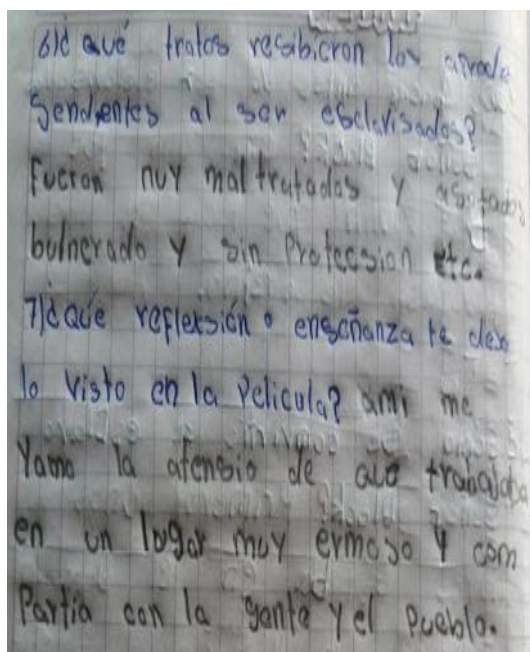 6)¿ qué tratos resibieron los afrode
sendientes al ser esclavisados?
Fueron muy maltratados y asotados
bulnerado y sin Proteccsion etc.
7)¿que reflexsión o enseñanza te dexo
lo visto en la Pelicula? ami me
Yamo la atensio de que trabajaba
en un lugar muy ermoso y com
Partia con la gente y el pueblo.